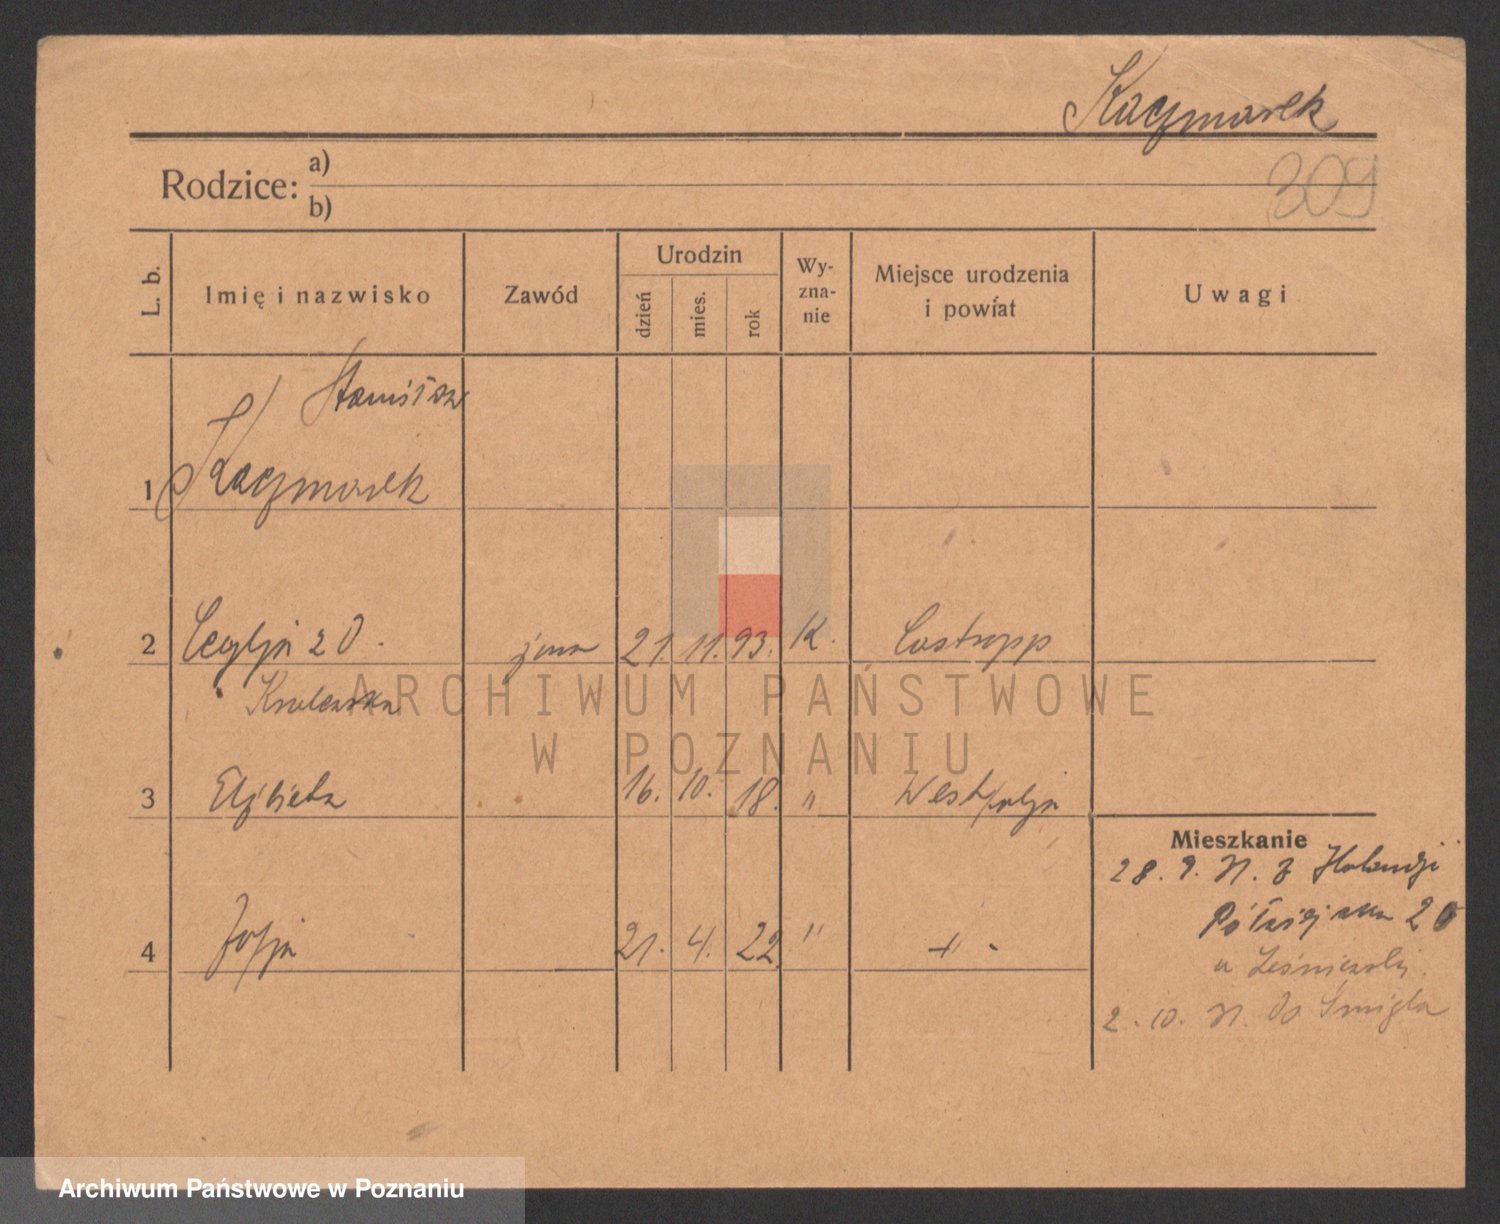 Kaczmarek
309
Rodzice: a)
b)
L. b.
Imię i nazwisko
Zawód
Urodzin
dzień
mies.
rok
Wy-
zna-
nie
Miejsce urodzenia
i powiat
Uwagi
Stanisław
1 Kaczmarek
2 Cecylja z D. żona 21. 11. 93. K. Castropp
3 Elżbieta 16. 10. 18. " Westfalja
Mieszkanie
28. 9. z Holandji
4 Zofja 21. 4. 22 " + -
20
u
2. 10. Do Śmigla
ARCHIWUM PAŃSTWOWE
W POZNANIU
Archiwum Państwowe w Poznaniu